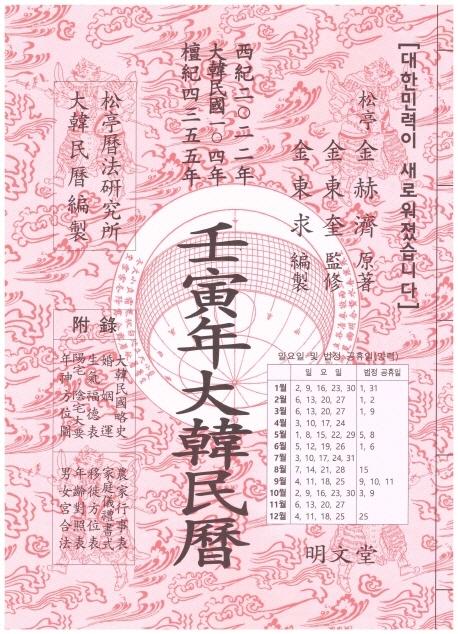 [대한민력이 새로워졌습니다]
松亭 金赫濟 原著
金東奎 監修
金東求 編製
西紀二〇二二年
大韓民國一〇四年
檀紀四三五五年
松亭曆法研究所
大韓民曆編製
壬寅年大韓民曆
附錄
大韓民國略史
婚姻運
生氣福德表
陽宅·陰宅大要
年神方位圖
農家行事表
家庭儀禮書式
移徙方位表
年齡對照表
男女宮合法
일요일 및 법정 공휴일(양력)
일 요 일 법정 공휴일
1월 2, 9, 16, 23, 30 1, 31
2월 6, 13, 20, 27 1, 2
3월 6, 13, 20, 27 1, 9
4월 3, 10, 17, 24
5월 1, 8, 15, 22, 29 5, 8
6월 5, 12, 19, 26 1, 6
7월 3, 10, 17, 24, 31
8월 7, 14, 21, 28 15
9월 4, 11, 18, 25 9, 10, 11
10월 2, 9, 16, 23, 30 3, 9
11월 6, 13, 20, 27
12월 4, 11, 18, 25 25
明文堂